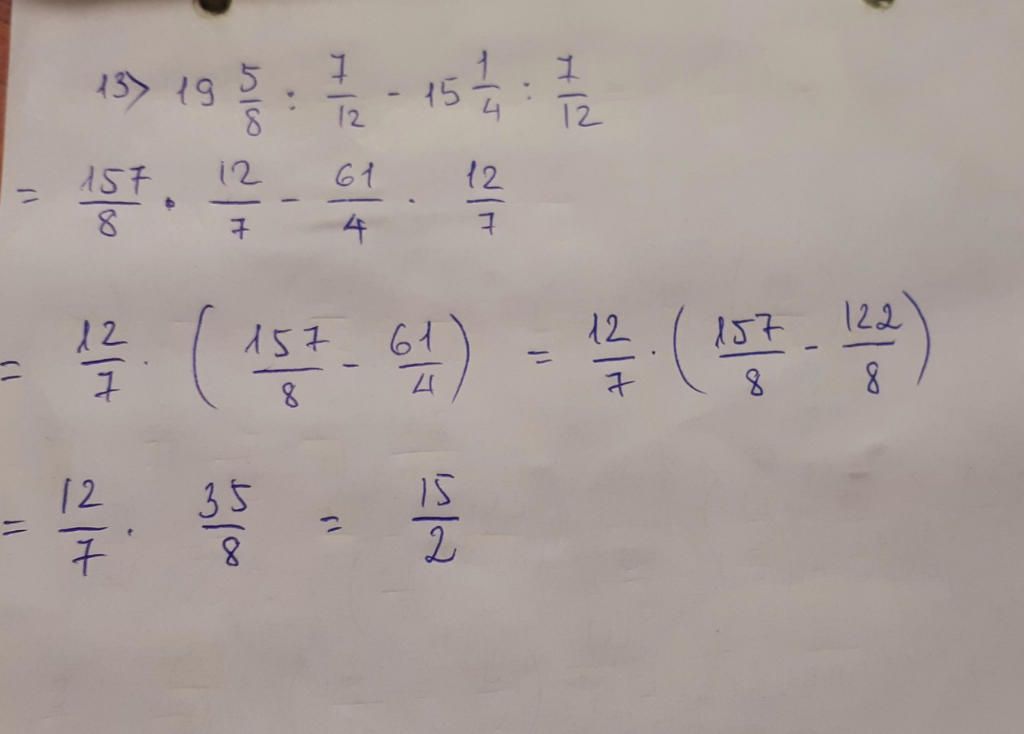 13> 19 5/8 : 7/12 - 15 1/4 : 7/12
= 157/8 . 12/7 - 61/4 . 12/7
= 12/7 . (157/8 - 61/4) = 12/7 . (157/8 - 122/8)
= 12/7 . 35/8 = 15/2